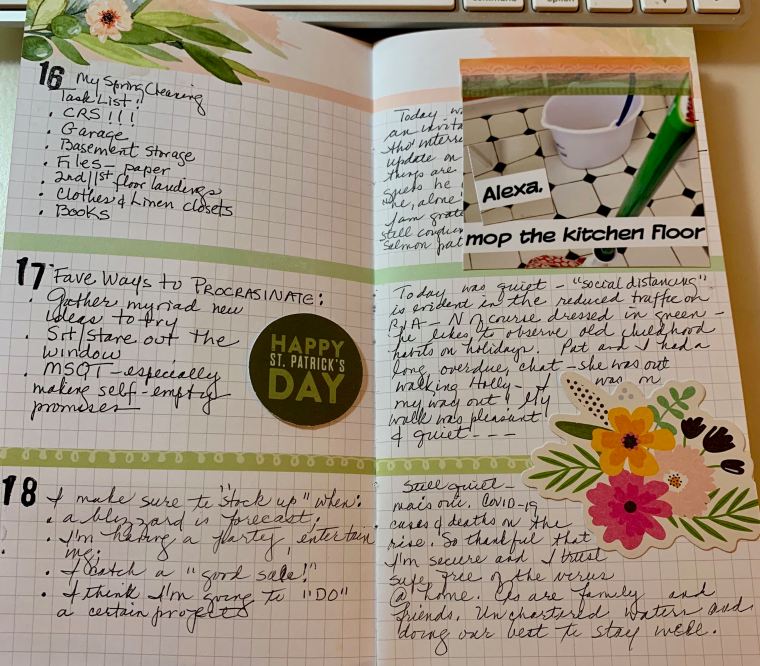 command
option
16 My Spring Cleaning
Task List!
• CRS!!!
• Garage
• Basement Storage
• Files - paper
• 2nd/1st floor landings
• Clothes & Linen closets
• Books
17 Fave Ways to PROCRASINATE:
• Gather myriad new
ideas to try
• Sit/stare out the
window
• MSOT - especially
making self-empty
promises
HAPPY
ST. PATRICK'S
DAY
18 I make sure to "stock up" when:
• a blizzard is forecast;
• I'm having a party, entertain
ing;
• I catch a "good sale!"
• I think I'm going to "DO"
a certain project
Today
an
tho'
update on
things are
guess he
me, alone
I am
still
Salmon
Alexa,
mop the kitchen floor
Today was quiet - "social distancing"
is evident in the reduced traffic on
- N of course dressed in green -
he likes to observe old childhood
habits on holidays. Pat and I had a
long overdue chat - she was out
walking Holly - I was on
my way out! My
walk was pleasant
& quiet - - -
Still quiet -
out. COVID-19
cases & deaths on the
rise. So thankful that
I'm secure and I trust
safe, free of the virus
@ home. are family and
friends. Unchartered waters and
doing our best to stay well.